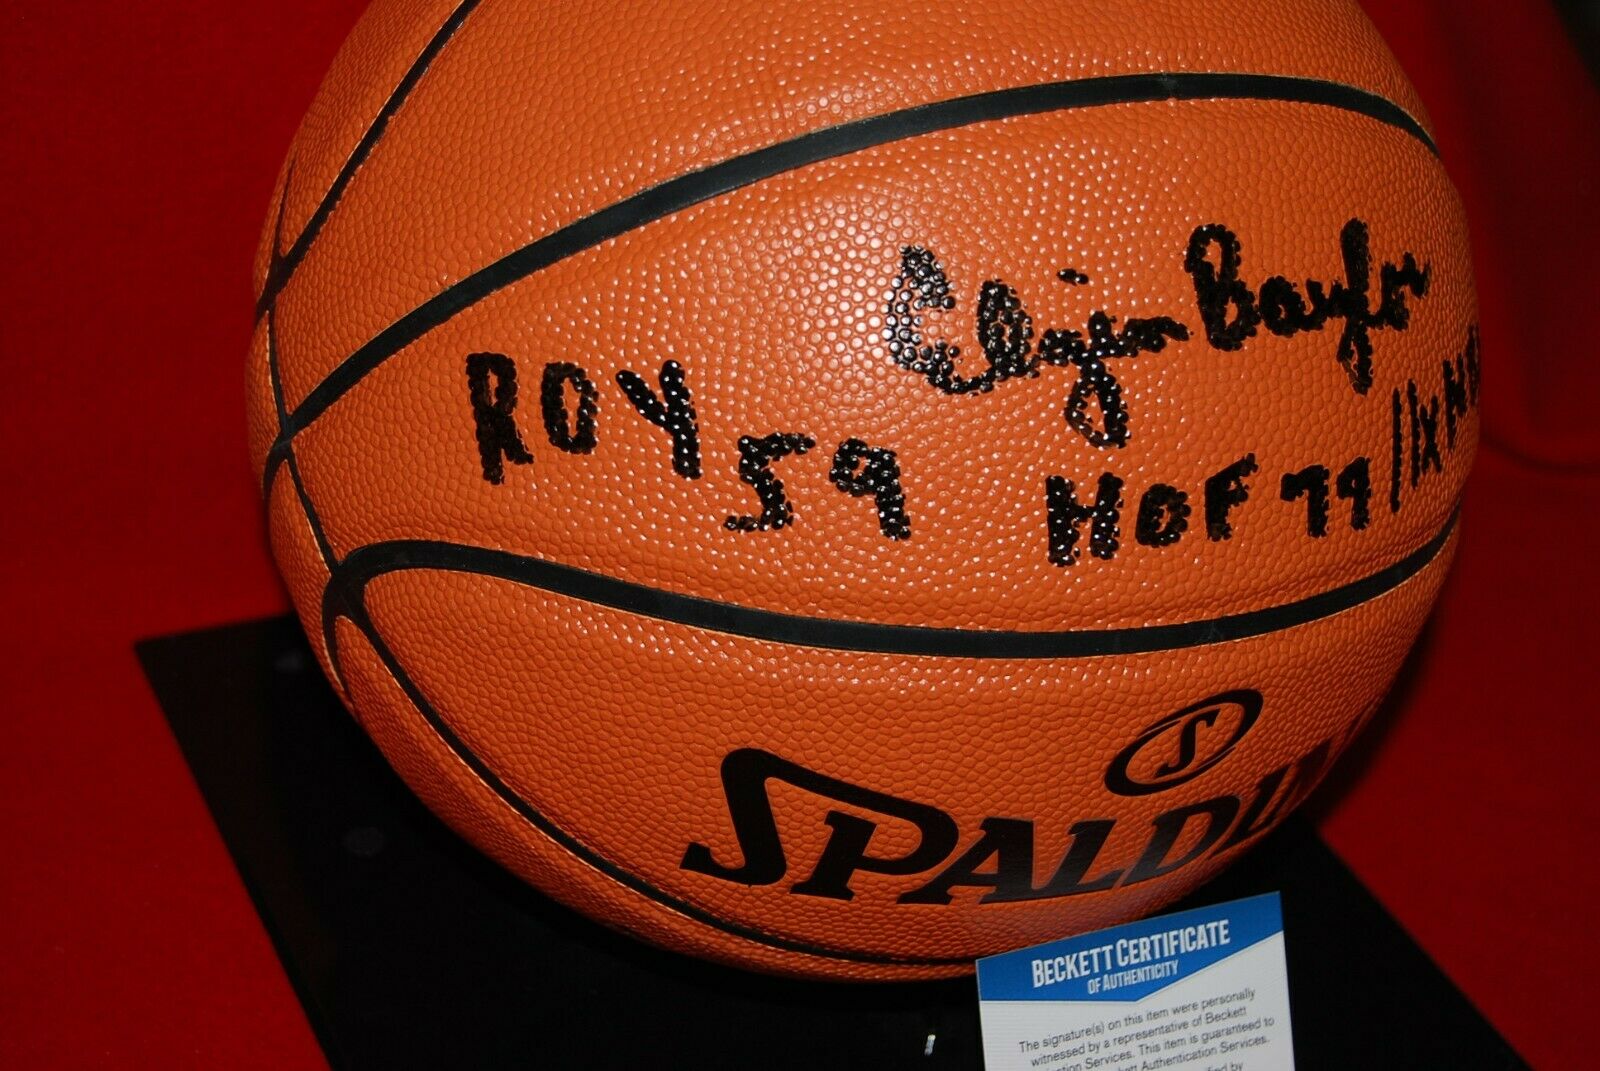 Elgin Baylor
ROY 59 HOF 77 11x
S
SPALDI
BECKETT CERTIFICATE
OF AUTHENTICITY
The signature(s) on this item were personally
witnessed by a representative of Beckett
Services. This item is guaranteed to
Authentication Services.
by